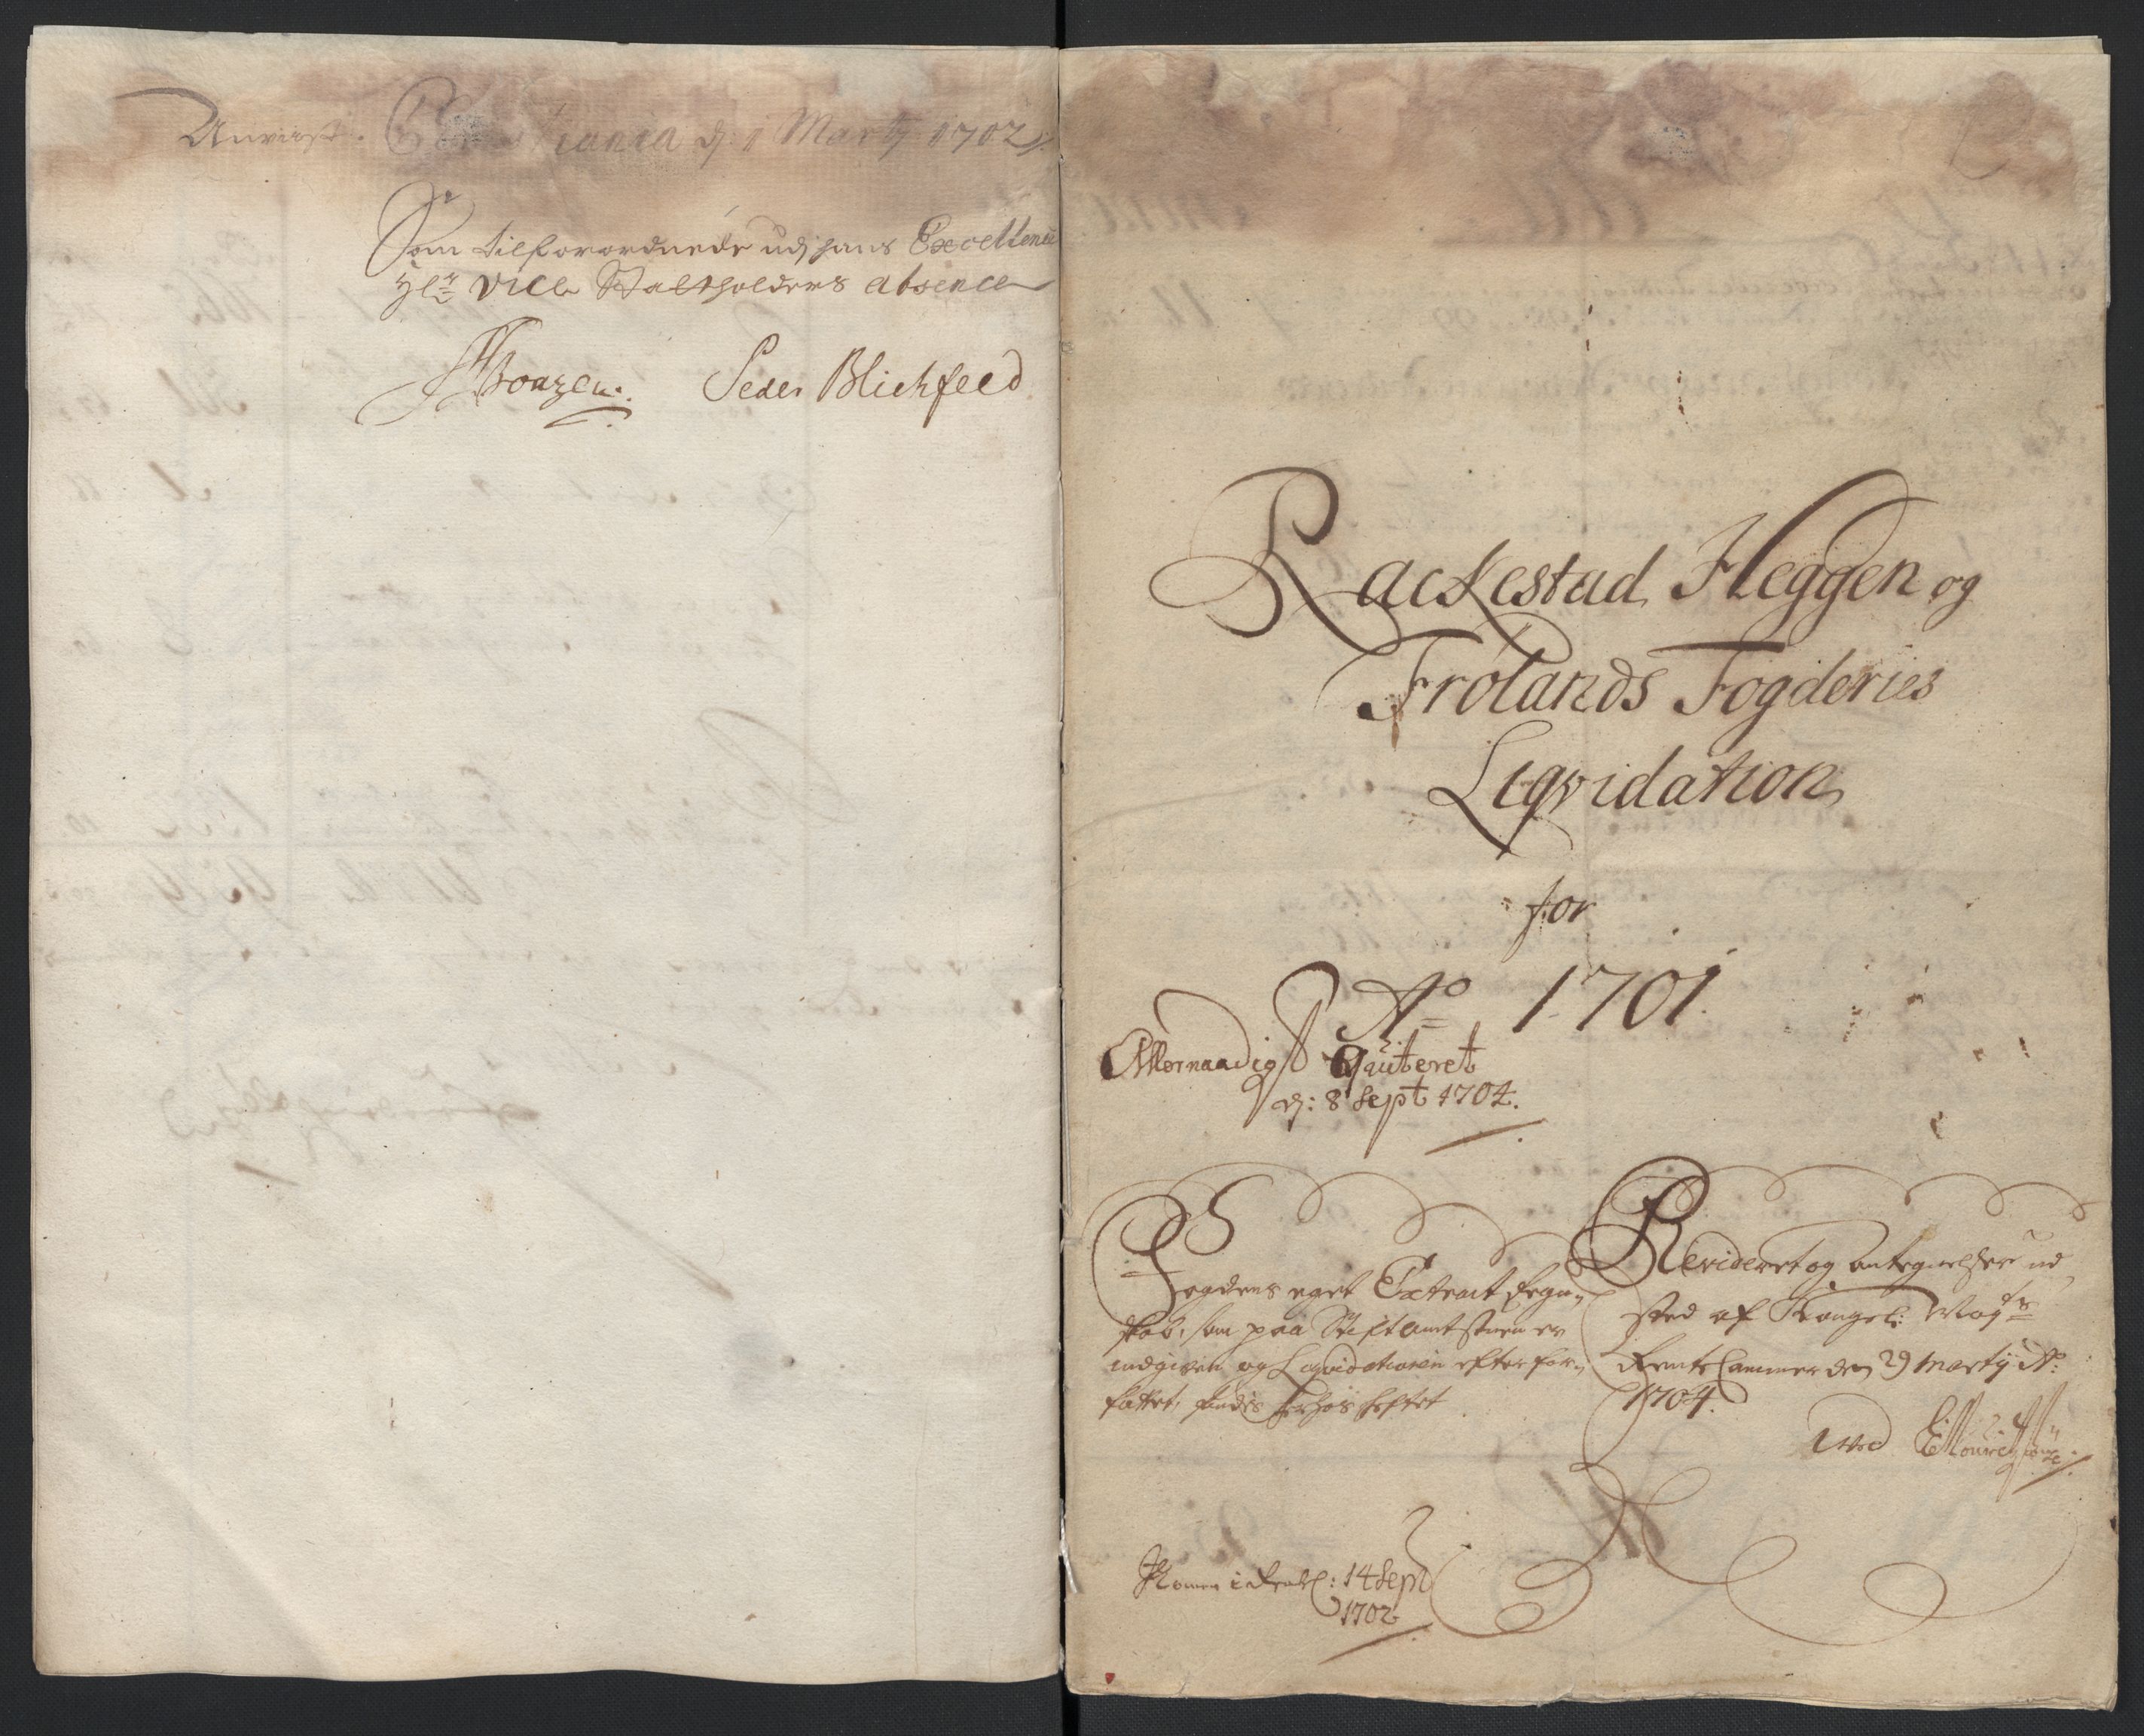 Anvist. Christiania d. 1 Martÿ 1702
Som tilforordnede udj hans Excellence
Hr. Vice Statholders absence
Peder Blichfeld
Rackestad Heggen og
Frölands Fogderies
Liqvidation
for
Ao 1701.
Allernaadigst Qviteret
d: 8 Sept 1704.
Fogdens eget Extract Regn-
skab, som paa Stiftamtstuen er
indgiven og Liqvidationen efter for-
fattet, findes herhos heftet
Revideret og antegnelser ud
sted af Kongel: Mayts
Rente Cammer den 29 Martij Ao:
1704.
ved
Kommen i Rentec: 14 Sept
1702